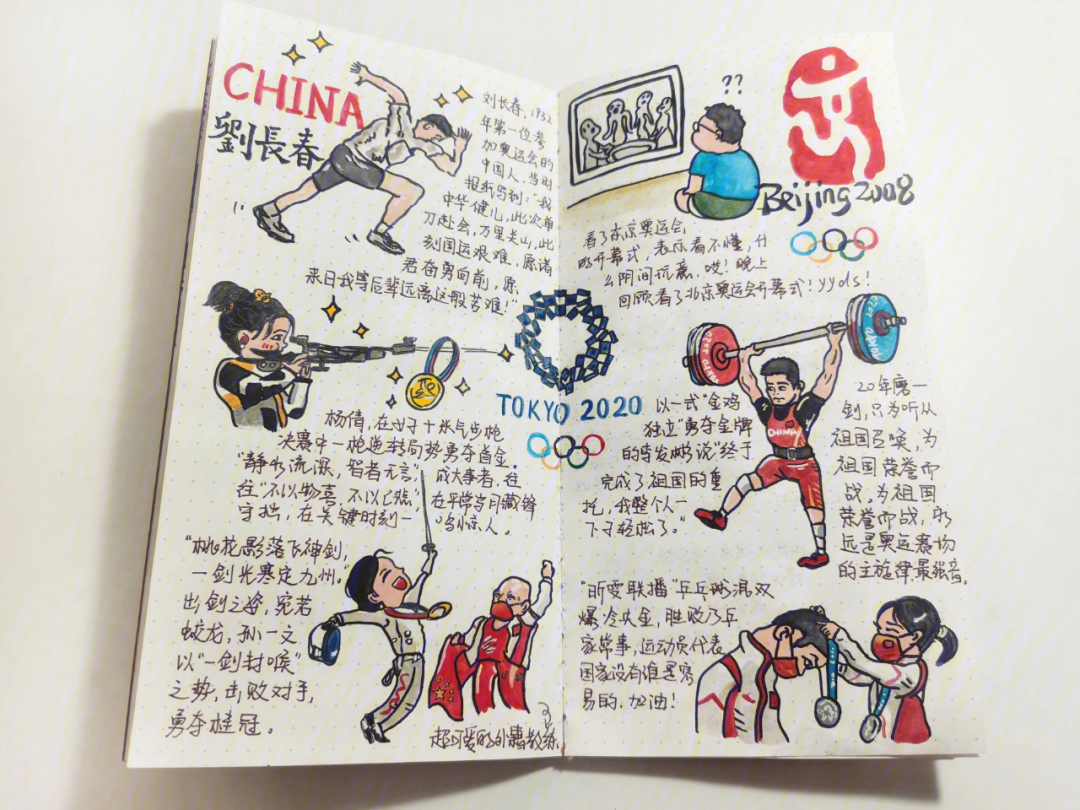 CHINA
劉長春
刘长春，1932
年第一位参
加奥运会的
中国人，当时
报纸写到："我
中华健儿，此次单
刀赴会，万里关山，此
刻国运艰难，愿诸
君奋勇向前，愿
来日我等后辈远离这般苦难！"
杨倩，在女子十米气步枪
决赛中一枪逆转局势勇夺首金。
"静水流深，智者无言"，成大事者，往
往"不以物喜，不以己悲"，在平常岁月藏锋
守拙，在关键时刻一鸣惊人。
"桃花影落飞神剑，
一剑光寒定九州。"
出剑之姿，宛若
蛟龙，孙一文
以"一剑封喉"
之势，击败对手，
勇夺桂冠。
超可爱的外籍教练
TOKYO 2020
??
Beijing 2008
看了东京奥运会
的开幕式，表示看不懂，什
么阴间玩意，哎！晚上
回顾看了北京奥运会开幕式！yyds！
以一式"金鸡
独立"勇夺金牌
的谌发
说"终于
完成了祖国的重
托，我整个人一
下子轻松了。"
20年磨一
剑，只为听从
祖国召唤，为
祖国荣誉而
战。为祖国
荣誉而战，永
远是奥运赛场
的主旋律最强音。
"昕雯联播"乒乓球混双
爆冷失金，胜败乃兵
家常事，运动员代表
国家没有谁是容
易的，加油！
CHINA